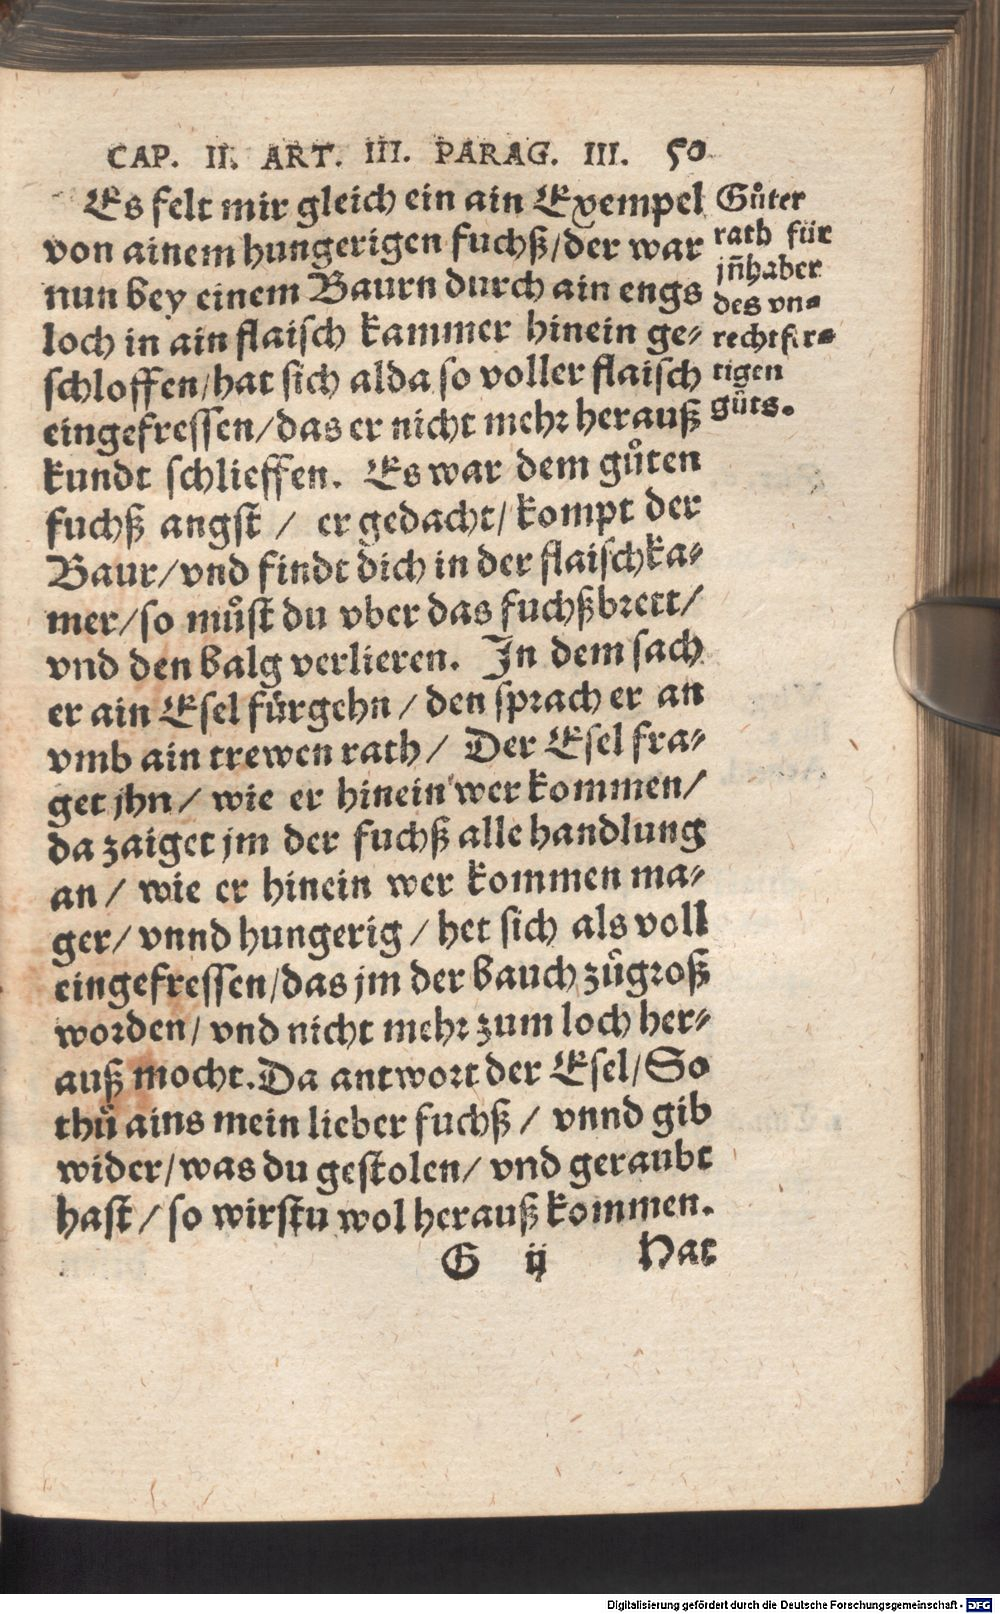 CAP. II. ART. III. PARAG. III. 50
Es felt mir gleich ein ain Exempel
von ainem hungerigen fuchß/der war
nun bey einem Baurn durch ain engs
loch in ain flaisch kammer hinein ge-
schloffen/hat sich alda so voller flaisch
eingefressen/das er nicht mehr herauß
kundt schlieffen. Es war dem gůten
fuchß angst / er gedacht/ kompt der
Baur/vnd findt dich in der flaischka-
mer/so můst du vber das fuchßbrett/
vnd den balg verlieren. In dem sach
er ain Esel fürgehn / den sprach er an
vmb ain trewen rath/ Der Esel fra-
get jhn/ wie er hinein wer kommen/
da zaiget jm der fuchß alle handlung
an/ wie er hinein wer kommen ma-
ger/ vnnd hungerig / het sich als voll
eingefressen/das jm der bauch zůgroß
worden/ vnd nicht mehr zum loch her-
auß mocht. Da antwort der Esel/ So
thů ains mein lieber fuchß / vnnd gib
wider/was du gestolen/ vnd geraubt
hast / so wirstu wol herauß kommen.
G ij Hat
Gůter
rath für
jn̄haber
des vn-
rechtfer-
tigen
gůts.
Digitalisierung gefördert durch die Deutsche Forschungsgemeinschaft - DFG